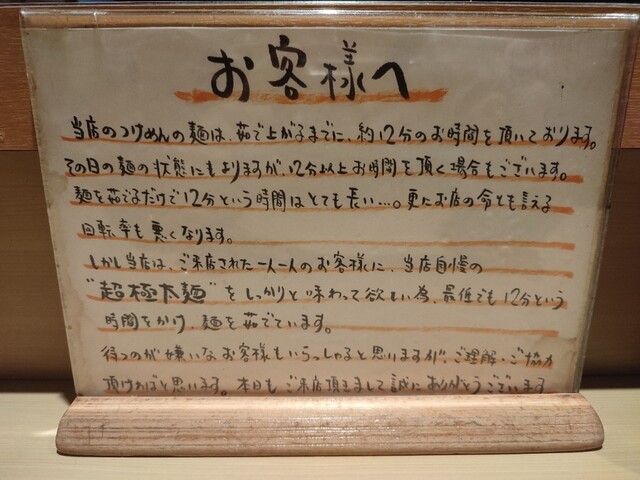 お客様へ
当店のつけめんの麺は、茹で上がるまでに、約12分のお時間を頂いております。
その日の麺の状態にもよりますが、12分以上お時間を頂く場合もございます。
麺を茹でるだけで12分という時間はとても長い…。更にお店の命とも言える
回転率も悪くなります。
しかし当店は、ご来店された一人一人のお客様に、当店自慢の
"超極太麺"をしっかりと味わって欲しい為、最低でも12分という
時間をかけ、麺を茹でています。
待つのが嫌いなお客様もいらっしゃると思いますが、ご理解・ご協力
頂ければと思います。本日もご来店頂きまして誠にありがとうございます